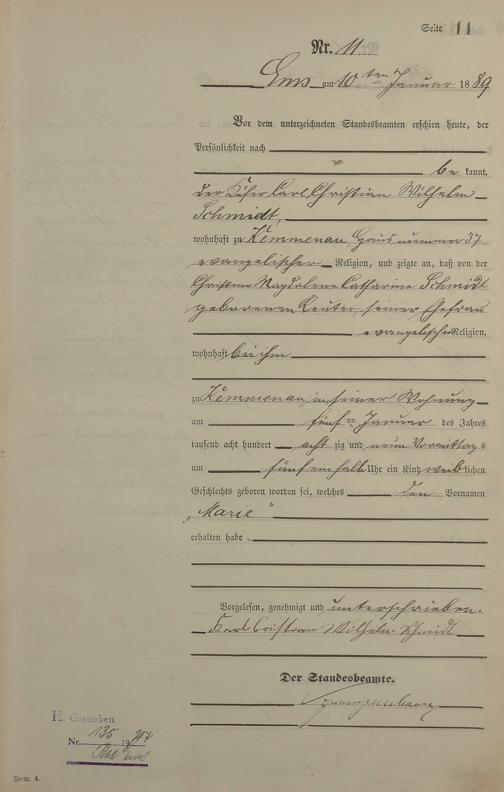 Seite 11
Nr. 11
Ems am 10 ten Januar 1889
Vor dem unterzeichneten Standesbeamten erschien heute, der
Persönlichkeit nach
be kannt,
der Küfer Carl Christian Wilhelm
Schmidt,
wohnhaft zu Kemmenau Haus nummer 37
evangelischer Religion, und zeigte an, daß von der
Christine Magdalene Catharine Schmidt
geborenen Reuter, seiner Ehefrau
evangelischer Religion,
wohnhaft bei ihm
zu Kemmenau in seiner Wohnung
am fünf ten Januar des Jahres
tausend acht hundert acht zig und neun Vormittag s
um fünf einhalb Uhr ein Kind weib lichen
Geschlechts geboren worden sei, welches den Vornamen
„Marie“
erhalten habe.
Vorgelesen, genehmigt und unterschrieben.
Karl Cristian Wilhelm Schmidt
Der Standesbeamte.
H. Gestorben
Nr. 135 19
Bad Ems
Form. A.